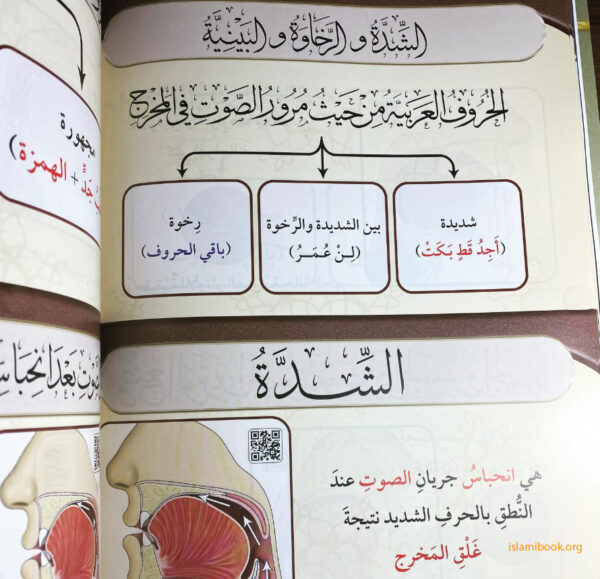 الشِّدَّةُ و الرَّخَاوَةُ و البَيْنِيَّةُ
الحُرُوفُ العَرَبِيَّةُ مِنْ حَيْثُ مُرُورُ الصَّوْتِ فِي المَخْرَجِ
شديدة
(أَجِدُ قَطٍ بَكَتْ)
بين الشديدة والرِّخوة
(لِـنْ عُمَـرُ)
رِخوة
(باقي الحروف)
الشِّدَّةُ
هي انحباسُ جريانِ الصوتِ عندَ
النُّطقِ بالحرفِ الشديد نتيجةَ
غَلْقِ المَخرج
مجهورة
جِدٍّ + الهمزة)
بَعْدَ انْحِبَاسِ
islamibook.org